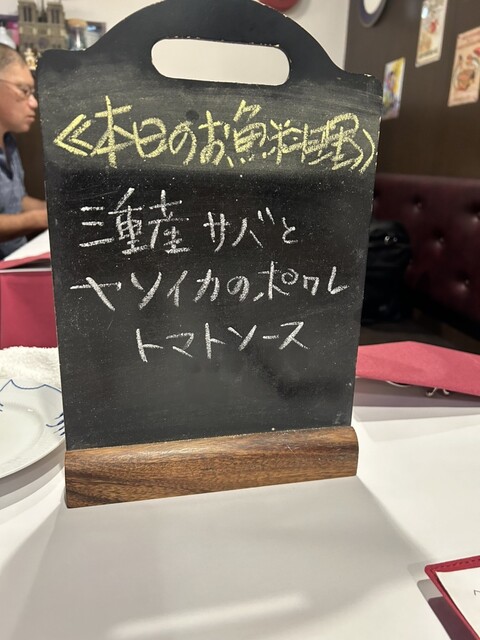 ≪本日のお魚料理≫
三重産 サバと
ヤソイカのポワレ
トマトソース